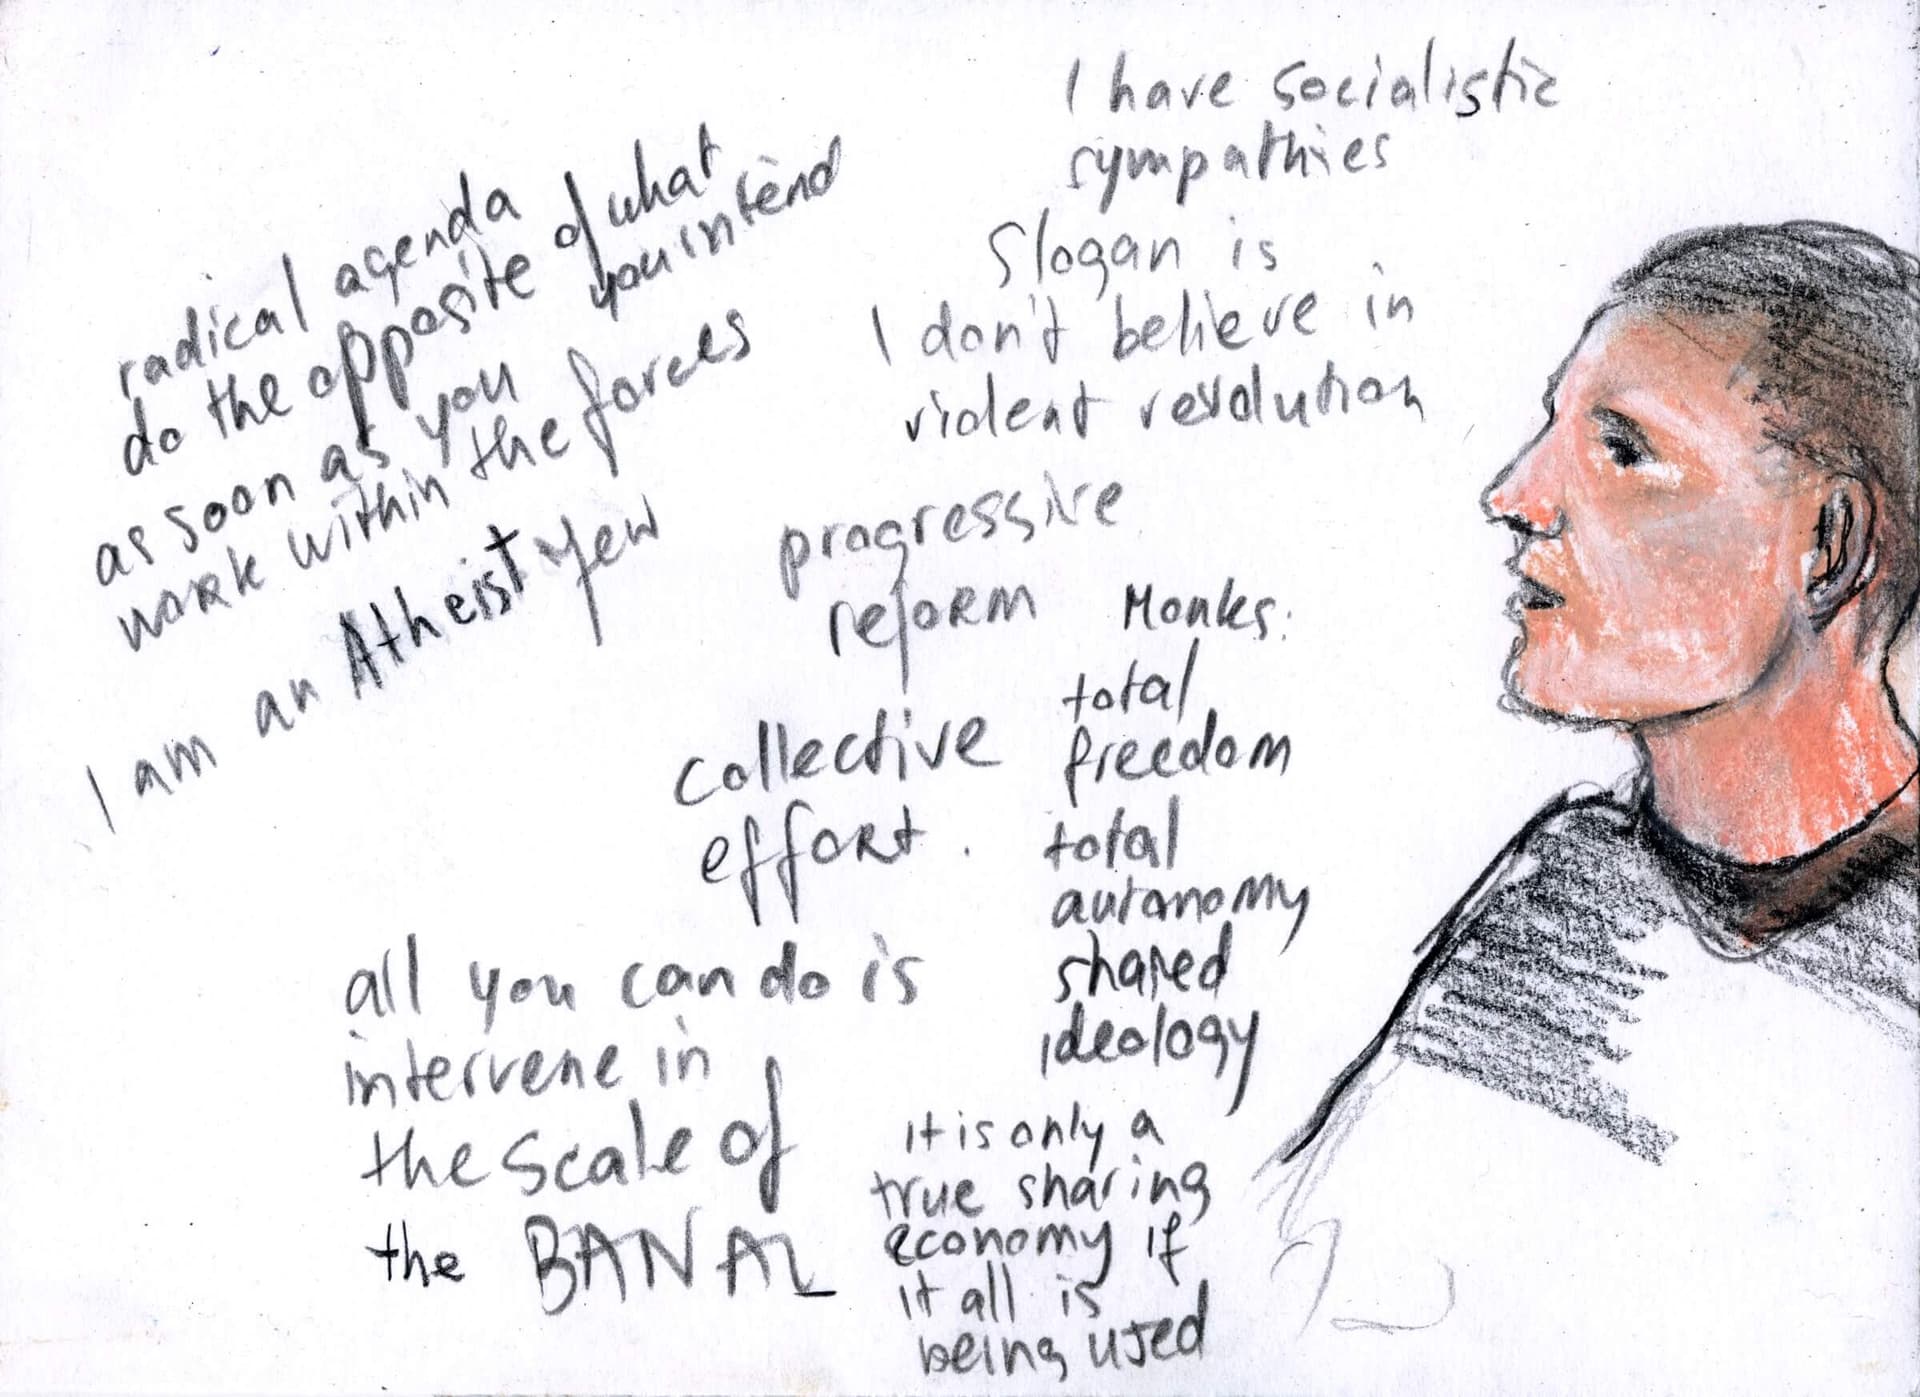 I have socialistic
sympathies
Slogan is
I don't believe in
violent revolution
progressive
reform
radical agenda
do the opposite of what
you intend
as soon as you
work within the forces
I am an Atheist Jew
collective
effort.
Monks:
total
freedom
total
autonomy
shared
ideology
all you can do is
intervene in
the scale of
the BANAL
it is only a
true sharing
economy if
it all is
being used